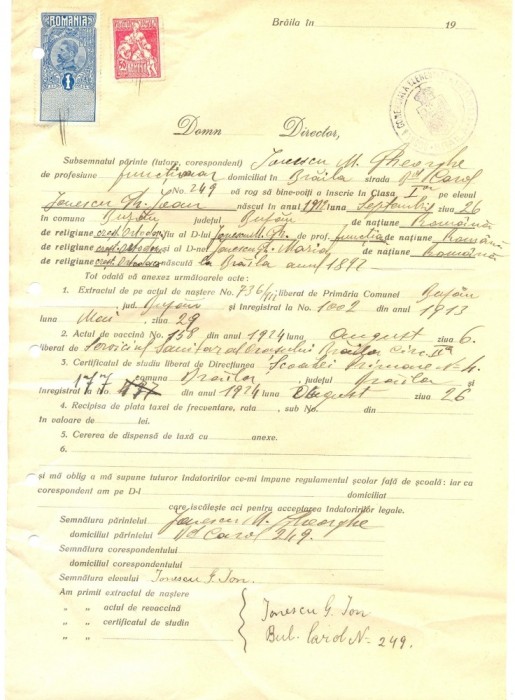 Brăila în 19
ROMANIA
1
Domn Director,
Subsemnatul părinte (tutore, corespondent) Ionescu M. Gheorghe
de profesiune funcționar domiciliat în Brăila strada Bld Carol
No. 249 vă rog să bine-voiți a înscrie în Clasa I pe elevul
Ionescu Gh. Ioan născut în anul 1912 luna Septembrie ziua 26
în comuna Buzău județul Buzău de națiune Română
de religiune creșt. Ortodox fiu al D-lui Ionescu M. Gh. de prof. funcția de națiune Română
de religiune creșt. Ortodox și al D-nei Ionescu Gh. Maria de națiune Română
de religiune creșt. Ortodoxă născută la Brăila anul 1892
Tot odată vă anexez următoarele acte :
1. Extractul de pe actul de naștere No. 736/ liberat de Primăria Comunei Buzău
jud. Buzău și înregistrat la No. 1002 din anul 1913
luna Mai ziua 29
2. Actul de vaccină No 158 din anul 1924 luna August ziua 6.
liberat de Serviciul Sanitar al Orașului Brăila Circ II
3. Certificatul de studii liberat de Direcțiunea Școalei Primare No 4.
comuna Brăila, județul Brăila și
înregistrat la No. 177 din anul 1924 luna August ziua 26
4. Recipisa de plata taxei de frecventare, rata, sub No. din
în valoare de lei.
5. Cererea de dispensă de taxă cu anexe.
6.
și mă oblig a mă supune tuturor îndatoririlor ce-mi impune regulamentul școlar față de școală: iar ca
corespondent am pe D-l domiciliat
care iscălește aci pentru acceptarea îndatoririlor legale.
Semnătura părintelui Ionescu M. Gheorghe
domiciliul părintelui Bld Carol 249.
Semnătura corespondentului
domiciliul corespondentului
Semnătura elevului Ionescu G. Ion.
Am primit extractul de naștere
„ „ actul de revaccină
„ „ certificatul de studii
„ „
Ionescu G. Ion
Bul. Carol No 249.